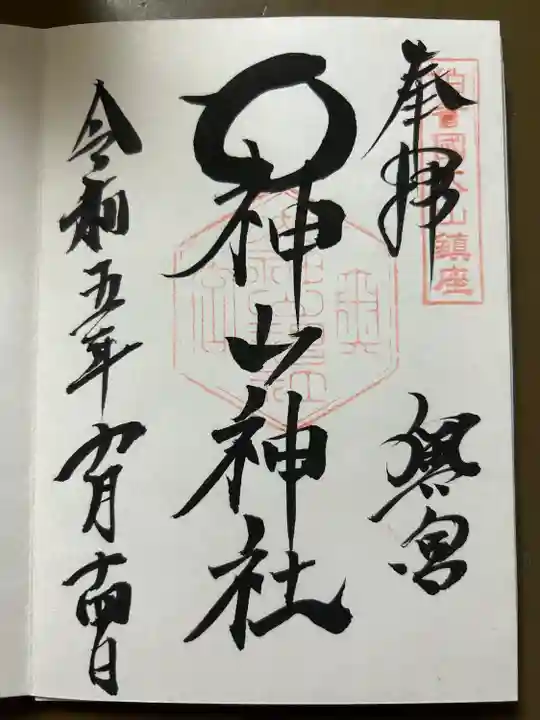 伯耆國大山鎮座
奉拝
奥宮
大神山神社
令和五年九月十四日